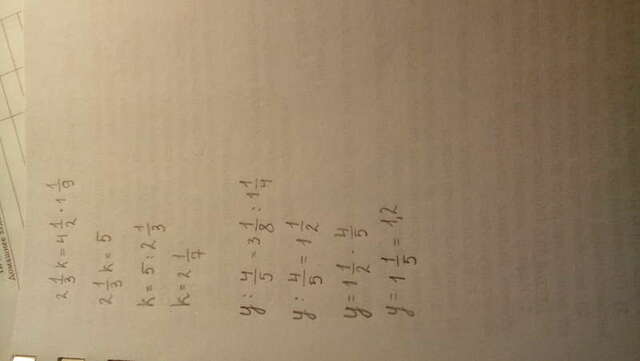 Домашнее
2 1/3 k = 4 1/2 · 1 1/9
2 1/3 k = 5
k = 5 : 2 1/3
k = 2 1/7
y : 4/5 = 3 1/8 : 1 1/4
y : 4/5 = 1 1/2
y = 1 1/2 · 4/5
y = 1 1/5 = 1,2